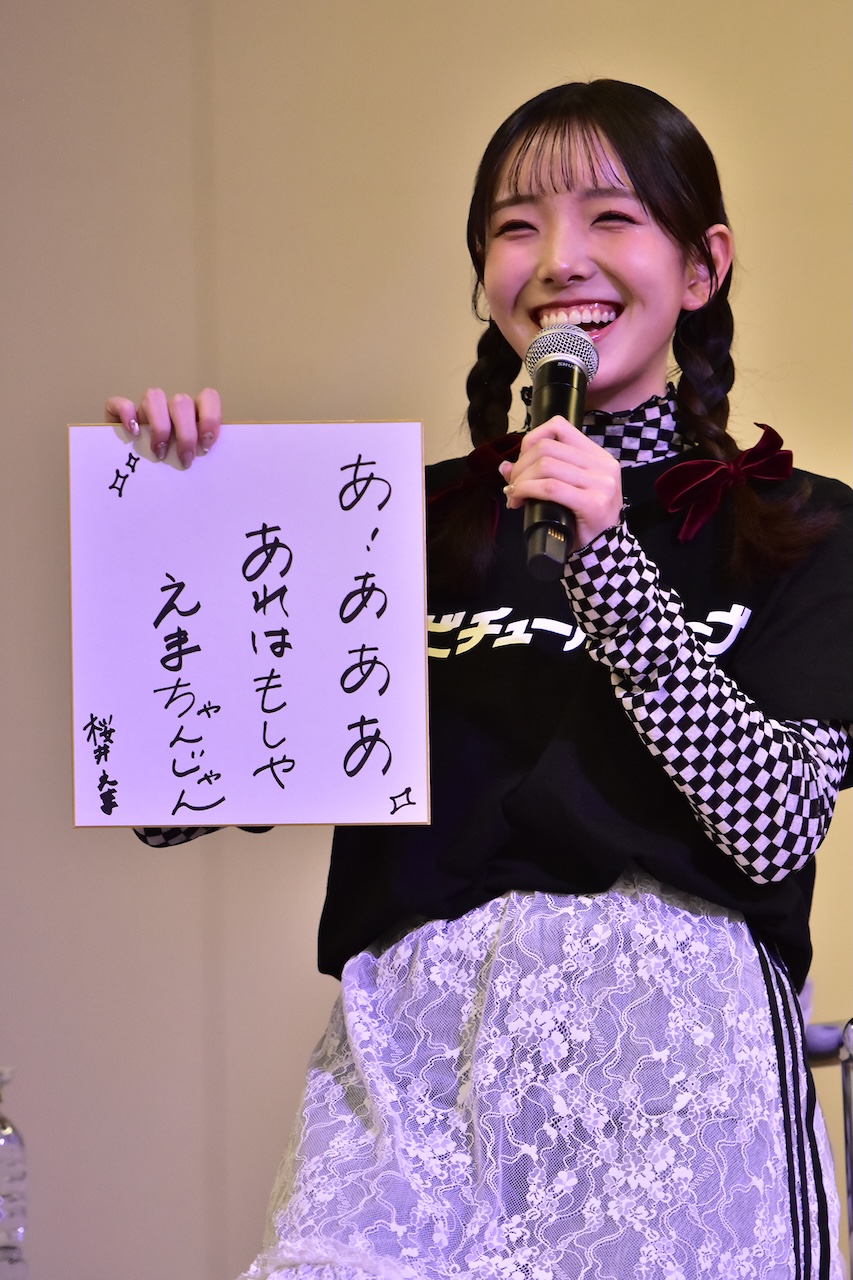 あ!あああ
あれはもしや
えまちゃんじゃん
桜井えま
ビチュー
SHURE